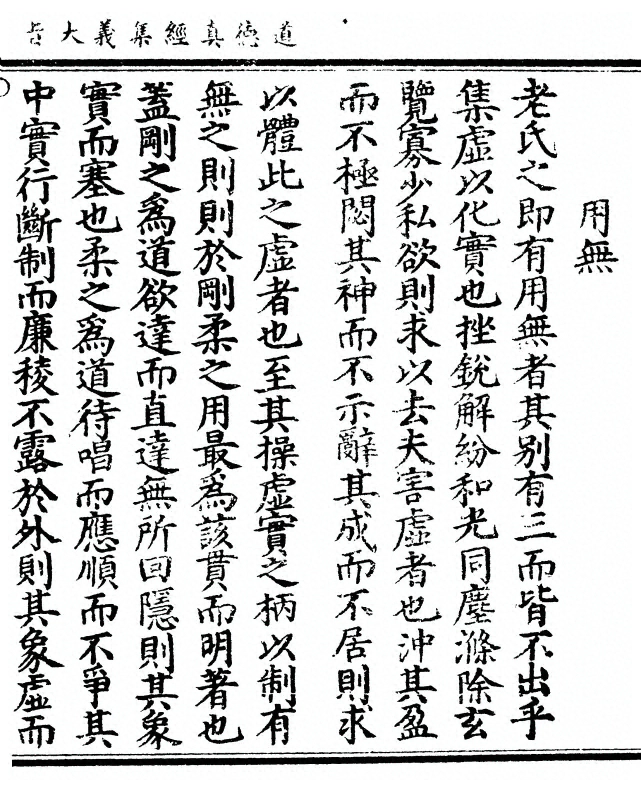 道德真經集義大旨
用無
老氏之即有用無者其别有三而皆不出乎
集虛以化實也挫銳解紛和光同塵滌除玄
覽寡少私欲則求以去夫害虛者也沖其盈
而不極閟其神而不示辭其成而不居則求
以體此之虛者也至其操虛實之柄以制有
無之則則於剛柔之用最為該貫而明著也
蓋剛之為道欲達而直達無所回隱則其象
實而塞也柔之為道待唱而應順而不爭其
中實行斷制而廉稜不露於外則其象虛而